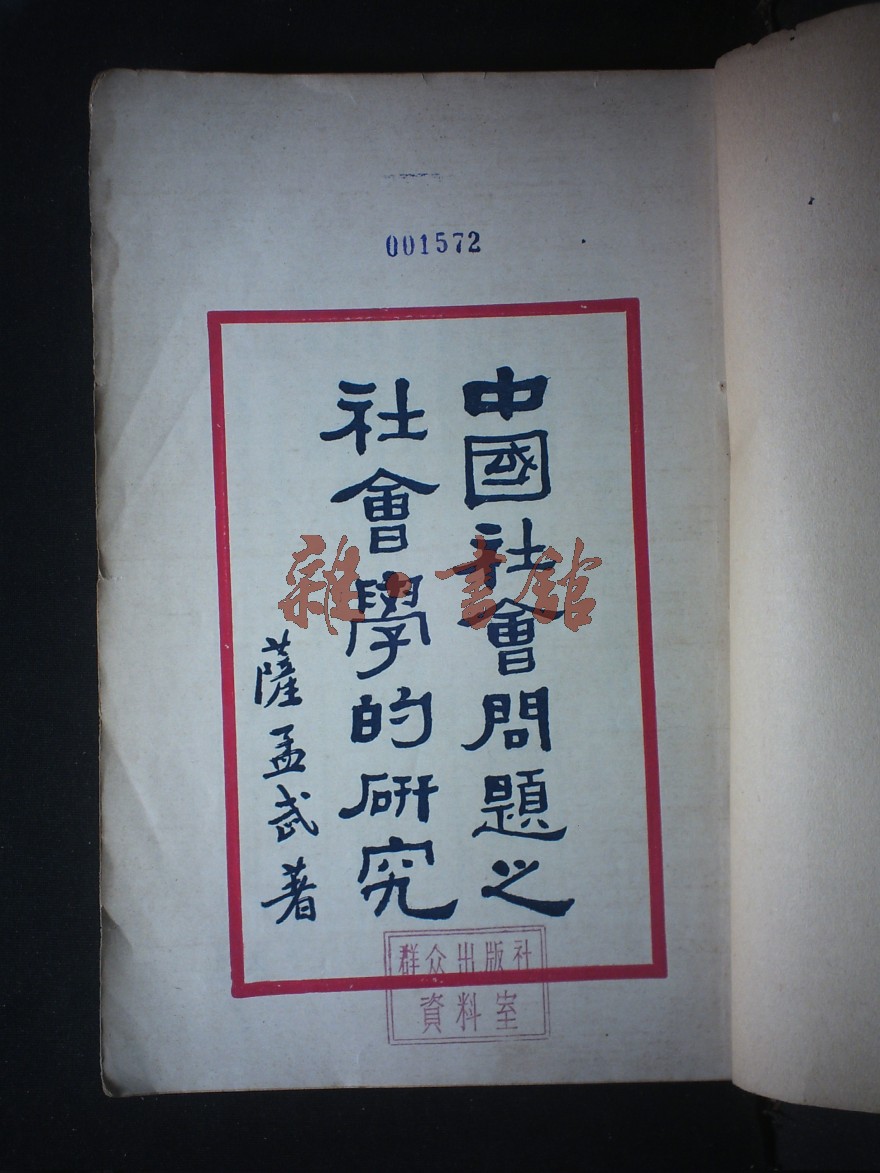 001572
中國社會問題之
社會學的研究
薩孟武著
雜·書館
群众出版社
資料室